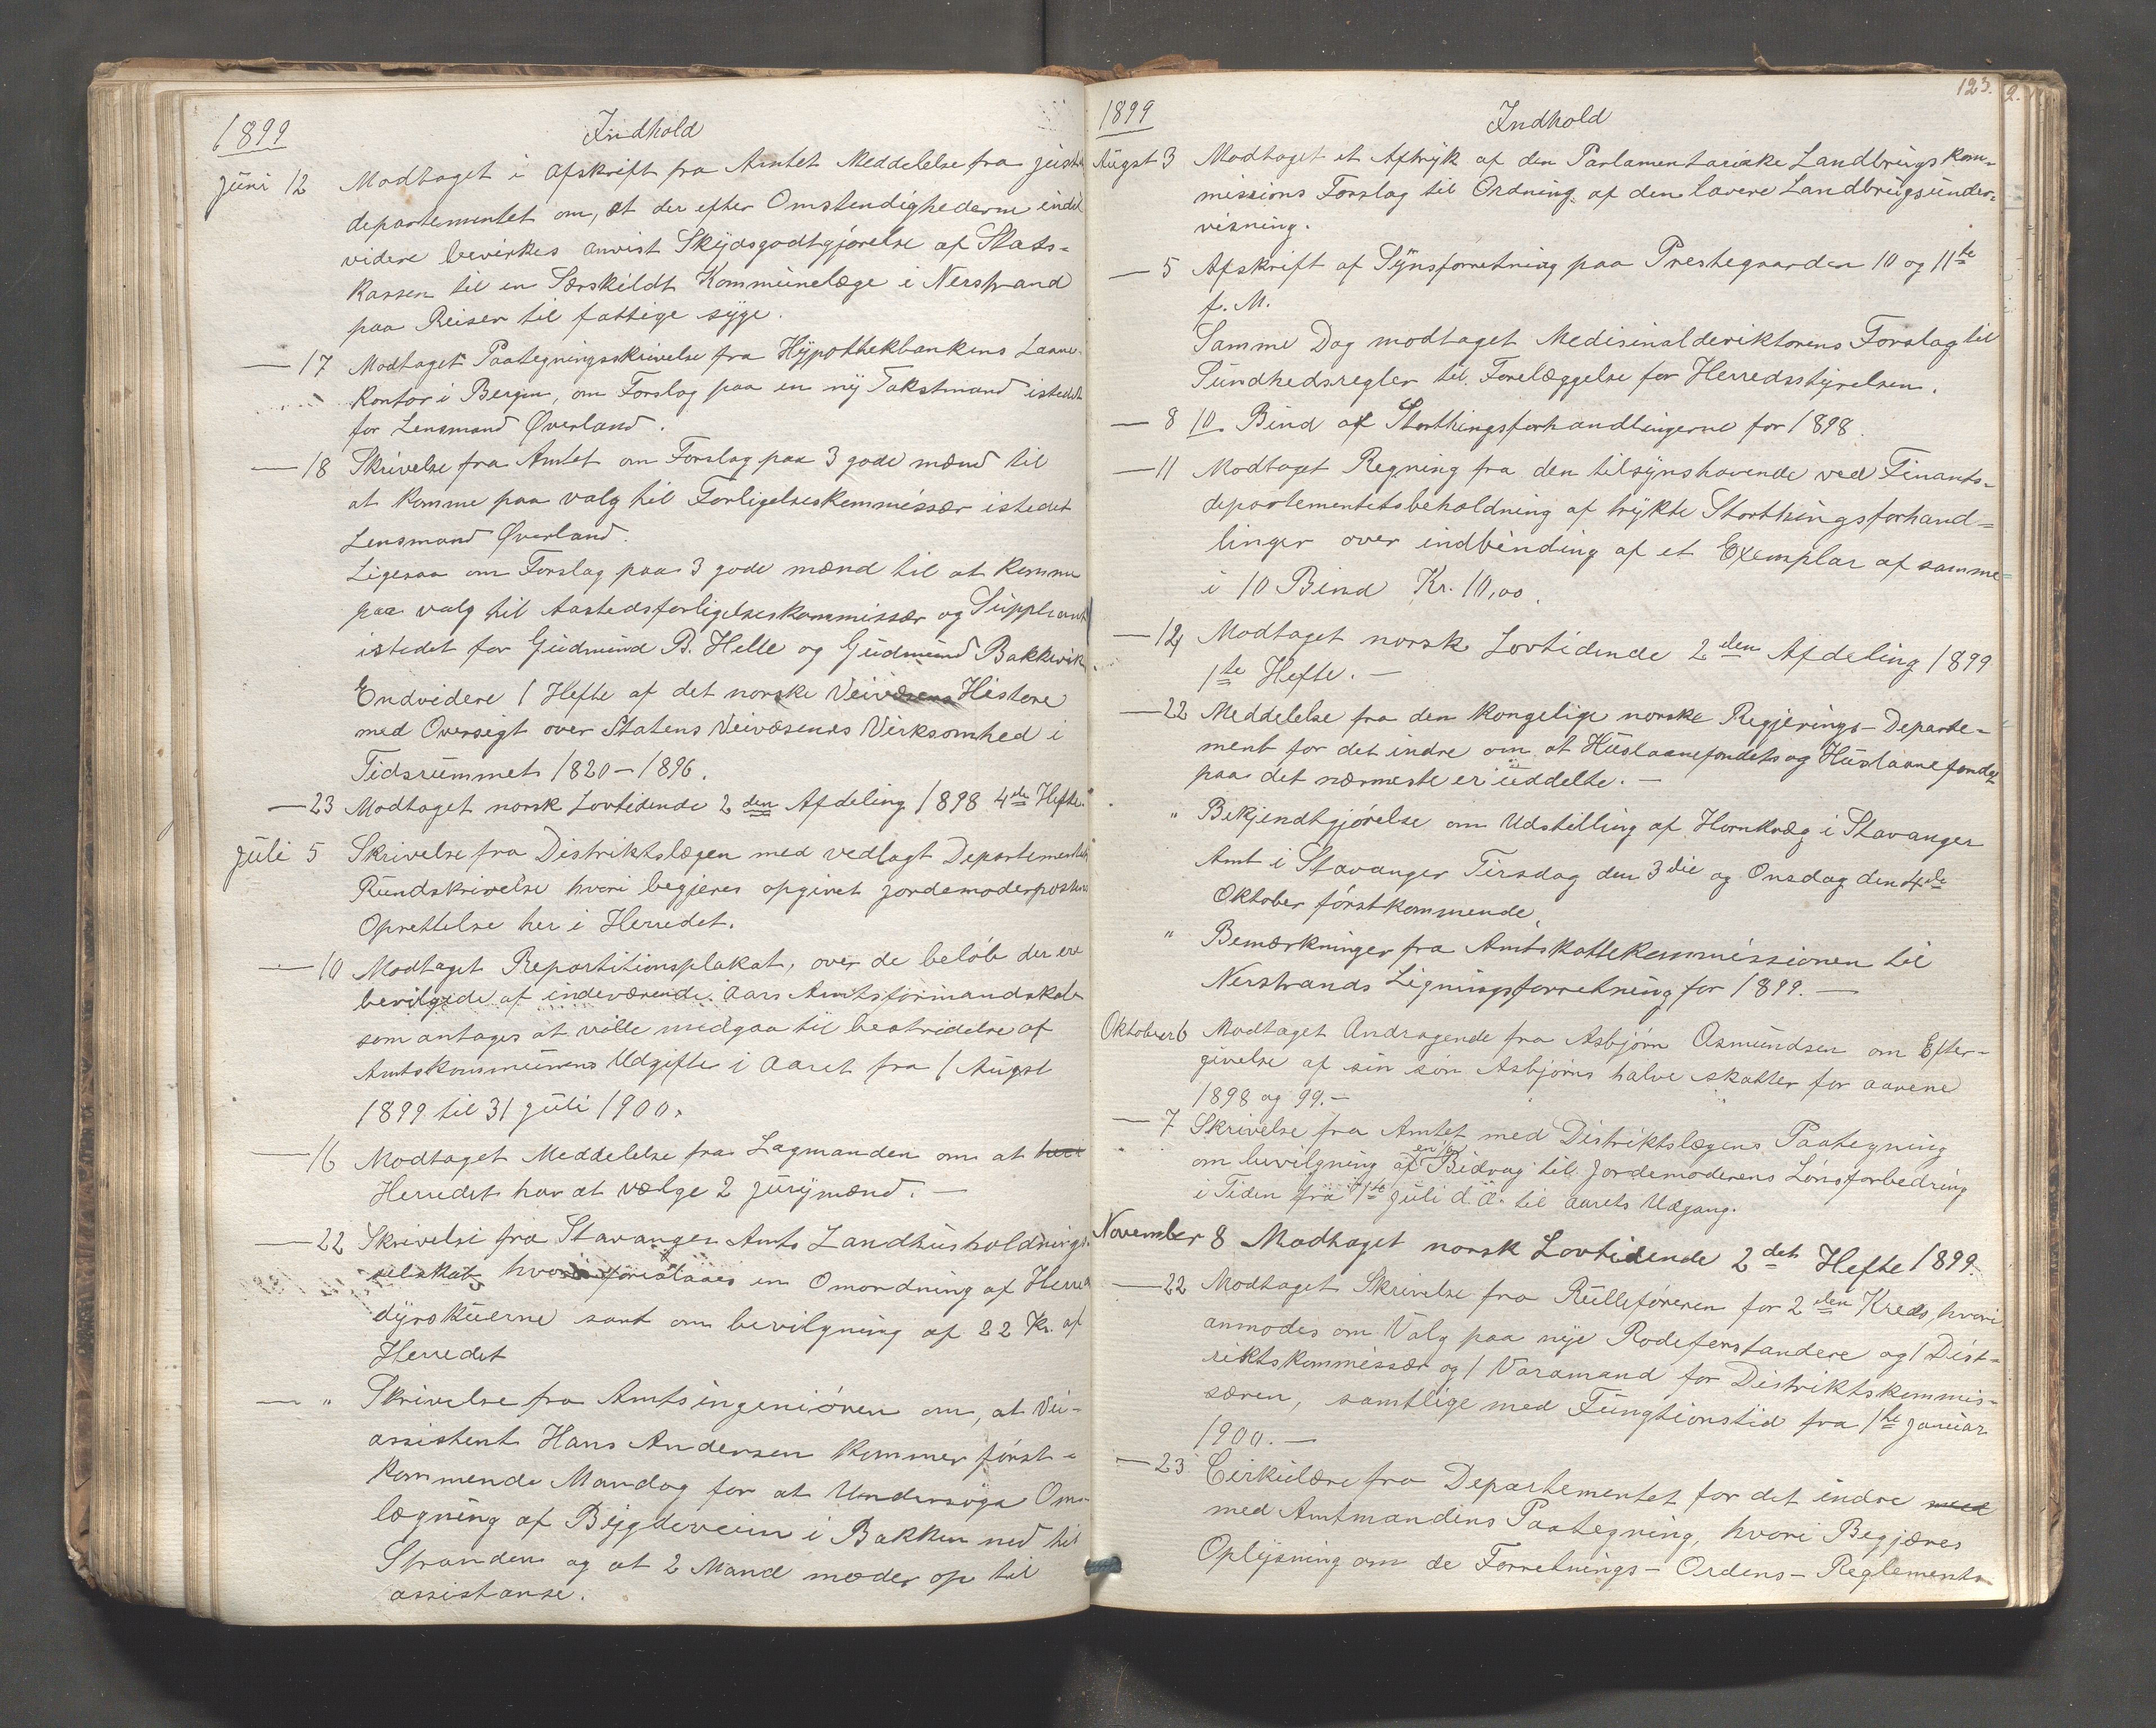 1899 Indhold
Juni 12 Modtaget i afskrift fra Amtet Meddelelse fra Justis
departementet om, at der efter Omstendighederne indtil
videre bevirkes anvist Skydsgodtgjørelse af Stats-
kassen til en Særskildt Kommunelæge i Nerstrand
paa Reiser til fattige syge.
— 17 Modtaget Paategningsskrivelse fra Hypothekbankens Laane-
kontor i Bergen, om Forslag paa en ny Takstmand istedet
for Lensmand Øverland.
— 18 Skrivelse fra Amtet om Forslag paa 3 gode mænd til
at komme paa valg til Forligelseskommissær istedet
Lensmand Øverland.
Ligesaa om Forslag paa 3 gode mænd til at komme
paa valg til Aastedsforligelseskommissær og Suppleant
istedet for Gudmund B. Helle og Gudmund Bakkevik
Endvidere 1 Hefte af det norske Veivæsens Histore
med Oversigt over Statens Veivæsenes Virksomhed i
Tidsrummet 1820–1896.
— 23 Modtaget norsk Lovtidende 2den Afdeling 1898 4de Hefte.
Juli 5 Skrivelse fra Distriktslægen med vedlagt Departementets
Rundskrivelse hvori begjeres opgivet jordemoderposters
Oprettelse her i Herredet.
— 10 Modtaget Repartitionsplakat, over de beløb der ere
bevilgede af indeværende Aars Amtsformandskab
som antages at ville medgaa til bestridelse af
Amtskommunens Udgifter i Aaret fra 1 August
1899 til 31 Juli 1900.
— 16 Modtaget Meddelelse fra Lagmanden om at her
Herredet har at vælge 2 Jurymænd. —
— 22 Skrivelse fra Stavanger Amts Landhusholdnings-
selskab hvori foreslaaes en Omordning af Herreds
dyrskuerne samt om bevilgning af 22 Kr. af
Herredet
— " Skrivelse fra Amtsingeniøren om, at Vei-
assistent Hans Andersen kommer først-
kommende Mandag for at Undersøge Om-
lægning af Bygdeveien i Bakken ned til
Stranden og at 2 Mand møder op til
assistanse.
123. 2.
1899 Indhold
August 3 Modtaget et Aftryk af den Parlamentariske Landbrugskom-
missions Forslag til Ordning af den lavere Landbrugsunder-
visning.
— 5 Afskrift af Synsforretning paa Prestegaarden 10 og 11te
f. M.
Samme Dag modtaget Medisinalderiktorens Forslag til
Sundhedsregler til Forelæggelse for Herredsstyrelsen.
— 8 10. Bind af Storthingsforhandlingerne for 1898.
— 11 Modtaget Regning fra den tilsynshavende ved Finants-
departementetsbeholdning af trykte Storthingsforhand-
linger over indbinding af et Exemplar af samme
i 10 Bind Kr. 10,00.
— 14 Modtaget norsk Lovtidende 2den Afdeling 1899
1te Hefte. —
— 22 Meddelelse fra den kongelige norske Regjerings-Departe-
ment for det indre om at Huslaanefondets og Huslaanefondet
paa det nærmeste er uddelte. —
" Bekjendtgjørelse om Udstilling af Hornkvæg i Stavanger
Amt i Stavanger Tirsdag den 3die og Onsdag den 4de
Oktober førstkommende.
" Bemærkninger fra Amtskattekommissionen til
Nerstrands Ligningsforretning for 1899. —
Oktober 6 Modtaget Andragende fra Asbjørn Asmundsen om Efter-
givelse af sin søn Asbjørns halve skatter for aarene
1898 og 99. —
— 7 Skrivelse fra Amtet med Distriktslægens Paategning
om bevilgning af Bidrag til Jordemoderens Lønsforbedring
i Tiden fra 1te Juli d. a. til aarets Udgang.
November 8 Modtaget norsk Lovtidende 2det Hefte 1899.
— 22 Modtaget Skrivelse fra Rulleføreren for 2den Kreds, hvori
anmodes om Valg paa nye Rodeforstandere og 1 Dist-
riktskommissær og 1 Varamand for Distriktskommis-
særen, samtlige med Fungtionstid fra 1te Januar
1900. —
— 23 Cirkulære fra Departementet for det indre med
med Amtmandens Paategning, hvori Begjæres
Oplysning om de Forretnings-Ordens-Reglements